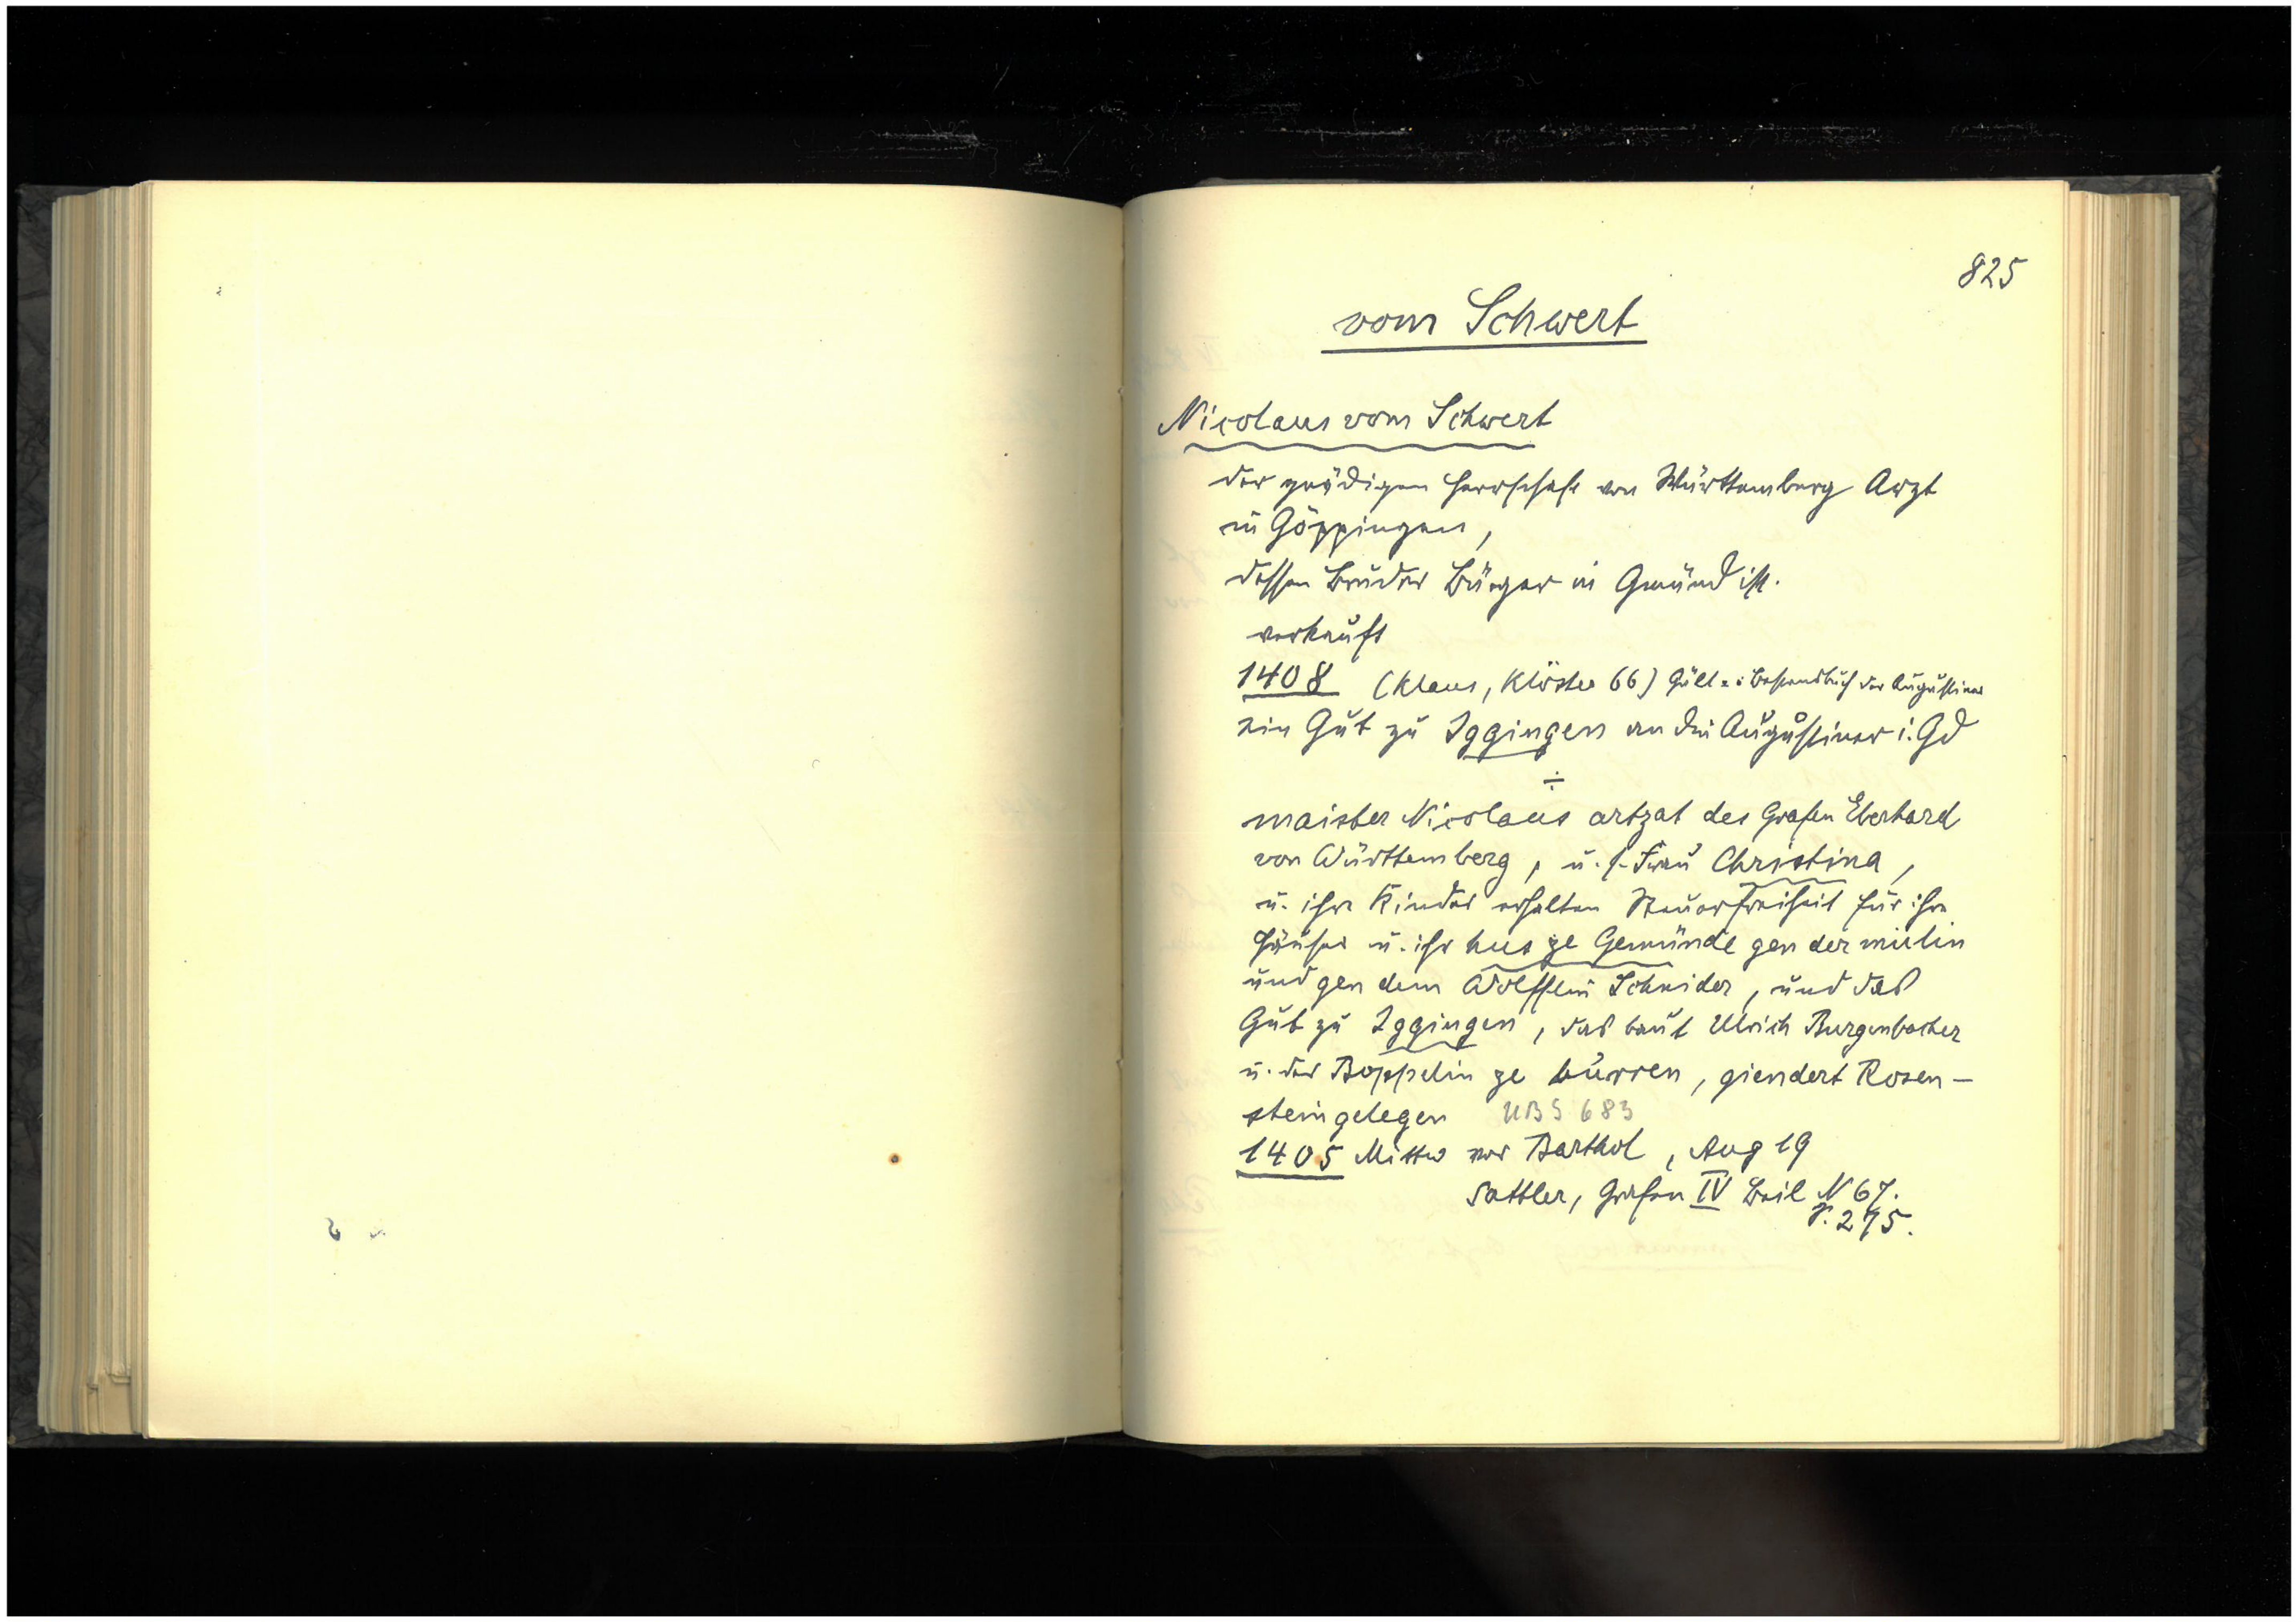 825
vom Schwert
Nicolaus vom Schwert
der gnädigen Herrschaft von Württemberg Arzt
in Göppingen,
dessen Bruder Bürger in Gmünd ist.
verkauft
1408 (Klaus, Klöster 66) Gült= Bestandbuch der Augustiner
ein Gut zu Iggingen an die Augustiner i. Gd
÷
maister Nicolaus artzat des Grafen Eberhard
von Württemberg, u. s. Frau Christina,
u. ihre Kinder erhalten Steuerfreiheit für ihre
Häuser u. ihr hus ze Gemünde gen der mülin
und gen dem Wölfflin Schnider, und das
Gut zu Iggingen, das baut Ulrich Burgenbacher
u. der Böppelin ze bürren, giendert Rosen-
stein gelegen UBS 683
1405 Mittw vor Barthol, Aug 19
Sattler, Grafen IV Beil N 67.
p. 275.